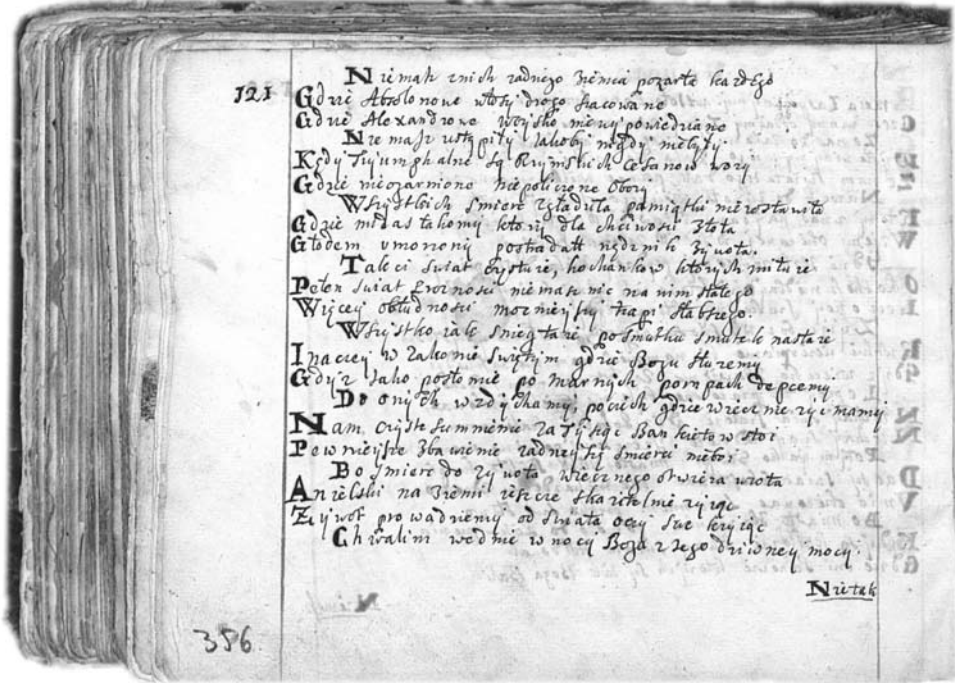 121
Niemasz znich zadnego ziemia pozarla kazdego
Gdzie Absolonowe włosy drogo szacowane
Gdzie Alexandrowe woysko niewypowiedziane
Nie masz ustąpiły Jakoby nigdy niebyły
Kędy Tryumphalne są Rzymskich Cesarzow wozy
Gdzie niezarmiono niepoliczone Obozy
Wszystkich smierc zgładziła pamiątki niezostawiła
Gdzie midas łakomy ktory dla chciwosci złota
Głodem vmorzony postradał nędznik zywota.
Tak ci swiat czystuie, kochankow ktorych miłuie
Pełen swiat proznosci niemasz nic na nim stałego
Więcey obłudnosci mocnieyszy trapi słabszego.
Wszystko iak snieg taie po smutku smutek nastaie
Inaczey w zakonie swiętym gdzie Bogu słuzemy
Gdyz iako po słomie po marnych pompach depcemy
Do onych wzdychamy pociech gdzie wiecznie zyc mamy
Nam czyste sumnienie za Tysiąc Bankietow stoi
Pewnieysze zbawienie zadney się smierci nieboi
Bo smierc do zywota wiecznego otwiera wrota
Anielski na ziemi ieszcze skazitelnie zyiąc
Zywot prowadziemy od swiata oczy swe kryiąc
Chwalim wednie w nocy Boga z Jego dziwney mocy.
Nie tak
356